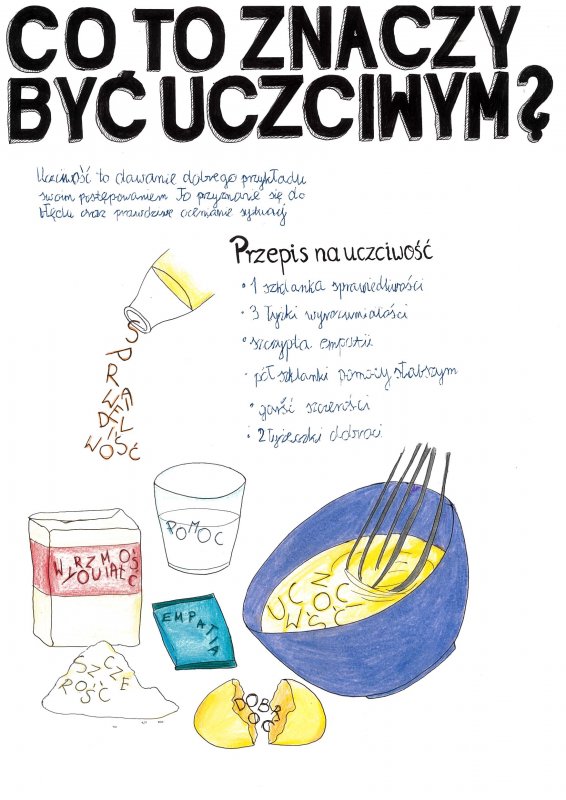 CO TO ZNACZY
BYĆ UCZCIWYM?
Uczciwość to dawanie dobrego przykładu
swoim postępowaniem To przyznanie się do
błędu oraz prawdziwe ocenianie sytuacji
Przepis na uczciwość
• 1 szklanka sprawiedliwości
• 3 łyżki wyrozumiałości
• szczypta empatii
• pół szklanki pomocy słabszym
• garść szczerości
• 2 łyżeczki dobroci
SPRAWIEDLIWOŚĆ
POMOC
WYROZUMIAŁOŚĆ
EMPATIA
UCZCIWOŚĆ
SZCZEROŚĆ
DOBROĆ